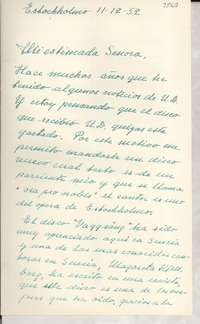 7560
Estockholmo 11-12-52
Mi estimada Senora,
Hace muchos años que he
tenido algunos noticias de U.D.
Y estoy pensando que el disco
que recibió U.D. quizas este
gastado. Por este motivo me
permito mandarle un disco
nuevo cual texto es de un
pariente mio y que se llama
"ora pro nobis" el cantor es uno
del opera de Estockholmo.
El disco "Vaggsång" ha sido
muy apreciado aqui en Suecia
y una de las mas conocidas can-
toras en Suecia, Margareta
ha escrito en una revista,
que este disco es una de los me-
jores que ha oido, gracias a la